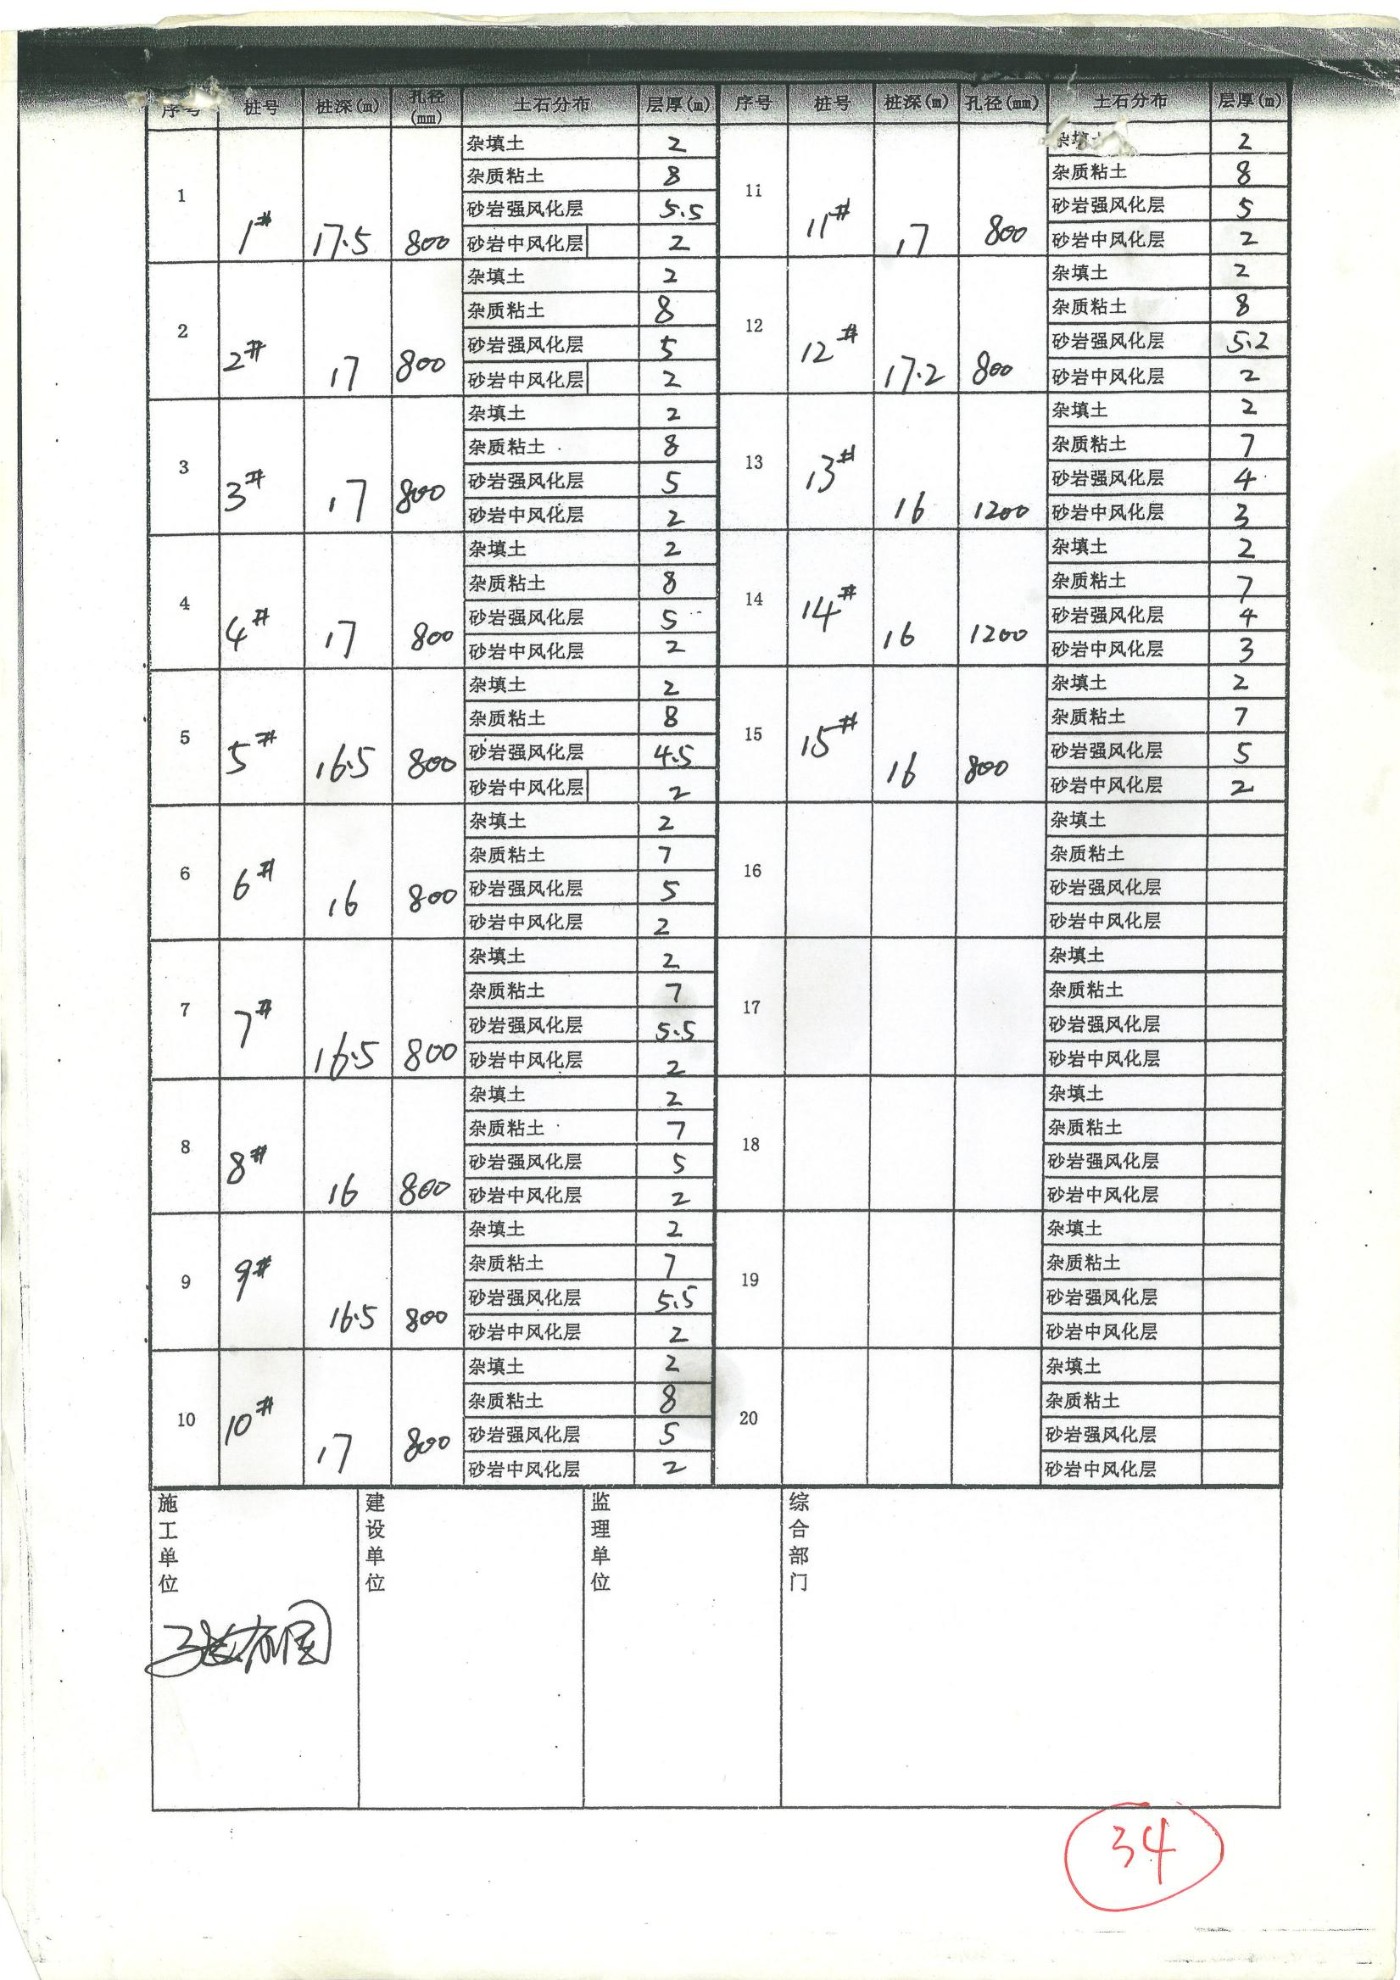 序号 桩号 桩深(m) 孔径(mm) 土石分布 层厚(m) 序号 桩号 桩深(m) 孔径(mm) 土石分布 层厚(m)
1 1# 17.5 800
杂填土 2
杂质粘土 8
砂岩强风化层 5.5
砂岩中风化层 2
2 2# 17 800
杂填土 2
杂质粘土 8
砂岩强风化层 5
砂岩中风化层 2
3 3# 17 800
杂填土 2
杂质粘土 8
砂岩强风化层 5
砂岩中风化层 2
4 4# 17 800
杂填土 2
杂质粘土 8
砂岩强风化层 5
砂岩中风化层 2
5 5# 16.5 800
杂填土 2
杂质粘土 8
砂岩强风化层 4.5
砂岩中风化层 2
6 6# 16 800
杂填土 2
杂质粘土 7
砂岩强风化层 5
砂岩中风化层 2
7 7# 16.5 800
杂填土 2
杂质粘土 7
砂岩强风化层 5.5
砂岩中风化层 2
8 8# 16 800
杂填土 2
杂质粘土 7
砂岩强风化层 5
砂岩中风化层 2
9 9# 16.5 800
杂填土 2
杂质粘土 7
砂岩强风化层 5.5
砂岩中风化层 2
10 10# 17 800
杂填土 2
杂质粘土 8
砂岩强风化层 5
砂岩中风化层 2
11 11# 17 800
杂填土 2
杂质粘土 8
砂岩强风化层 5
砂岩中风化层 2
12 12# 17.2 800
杂填土 2
杂质粘土 8
砂岩强风化层 5.2
砂岩中风化层 2
13 13# 16 1200
杂填土 2
杂质粘土 7
砂岩强风化层 4
砂岩中风化层 3
14 14# 16 1200
杂填土 2
杂质粘土 7
砂岩强风化层 4
砂岩中风化层 3
15 15# 16 800
杂填土 2
杂质粘土 7
砂岩强风化层 5
砂岩中风化层 2
16
杂填土
杂质粘土
砂岩强风化层
砂岩中风化层
17
杂填土
杂质粘土
砂岩强风化层
砂岩中风化层
18
杂填土
杂质粘土
砂岩强风化层
砂岩中风化层
19
杂填土
杂质粘土
砂岩强风化层
砂岩中风化层
20
杂填土
杂质粘土
砂岩强风化层
砂岩中风化层
施工单位
建设单位
监理单位
综合部门
34